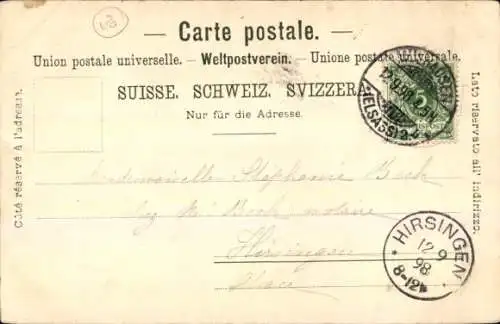 Carte postale.
Union postale universelle. – Weltpostverein. – Unione postale universale.
SUISSE. SCHWEIZ. SVIZZERA.
Nur für die Adresse.
Côté réservé à l'adresse.
Lato riservato all' indirizzo.
(ELSASS)
Mademoiselle Stéphanie Boch
Boch notaire
Hirsingen
HIRSINGEN
12 9
98
8-12V